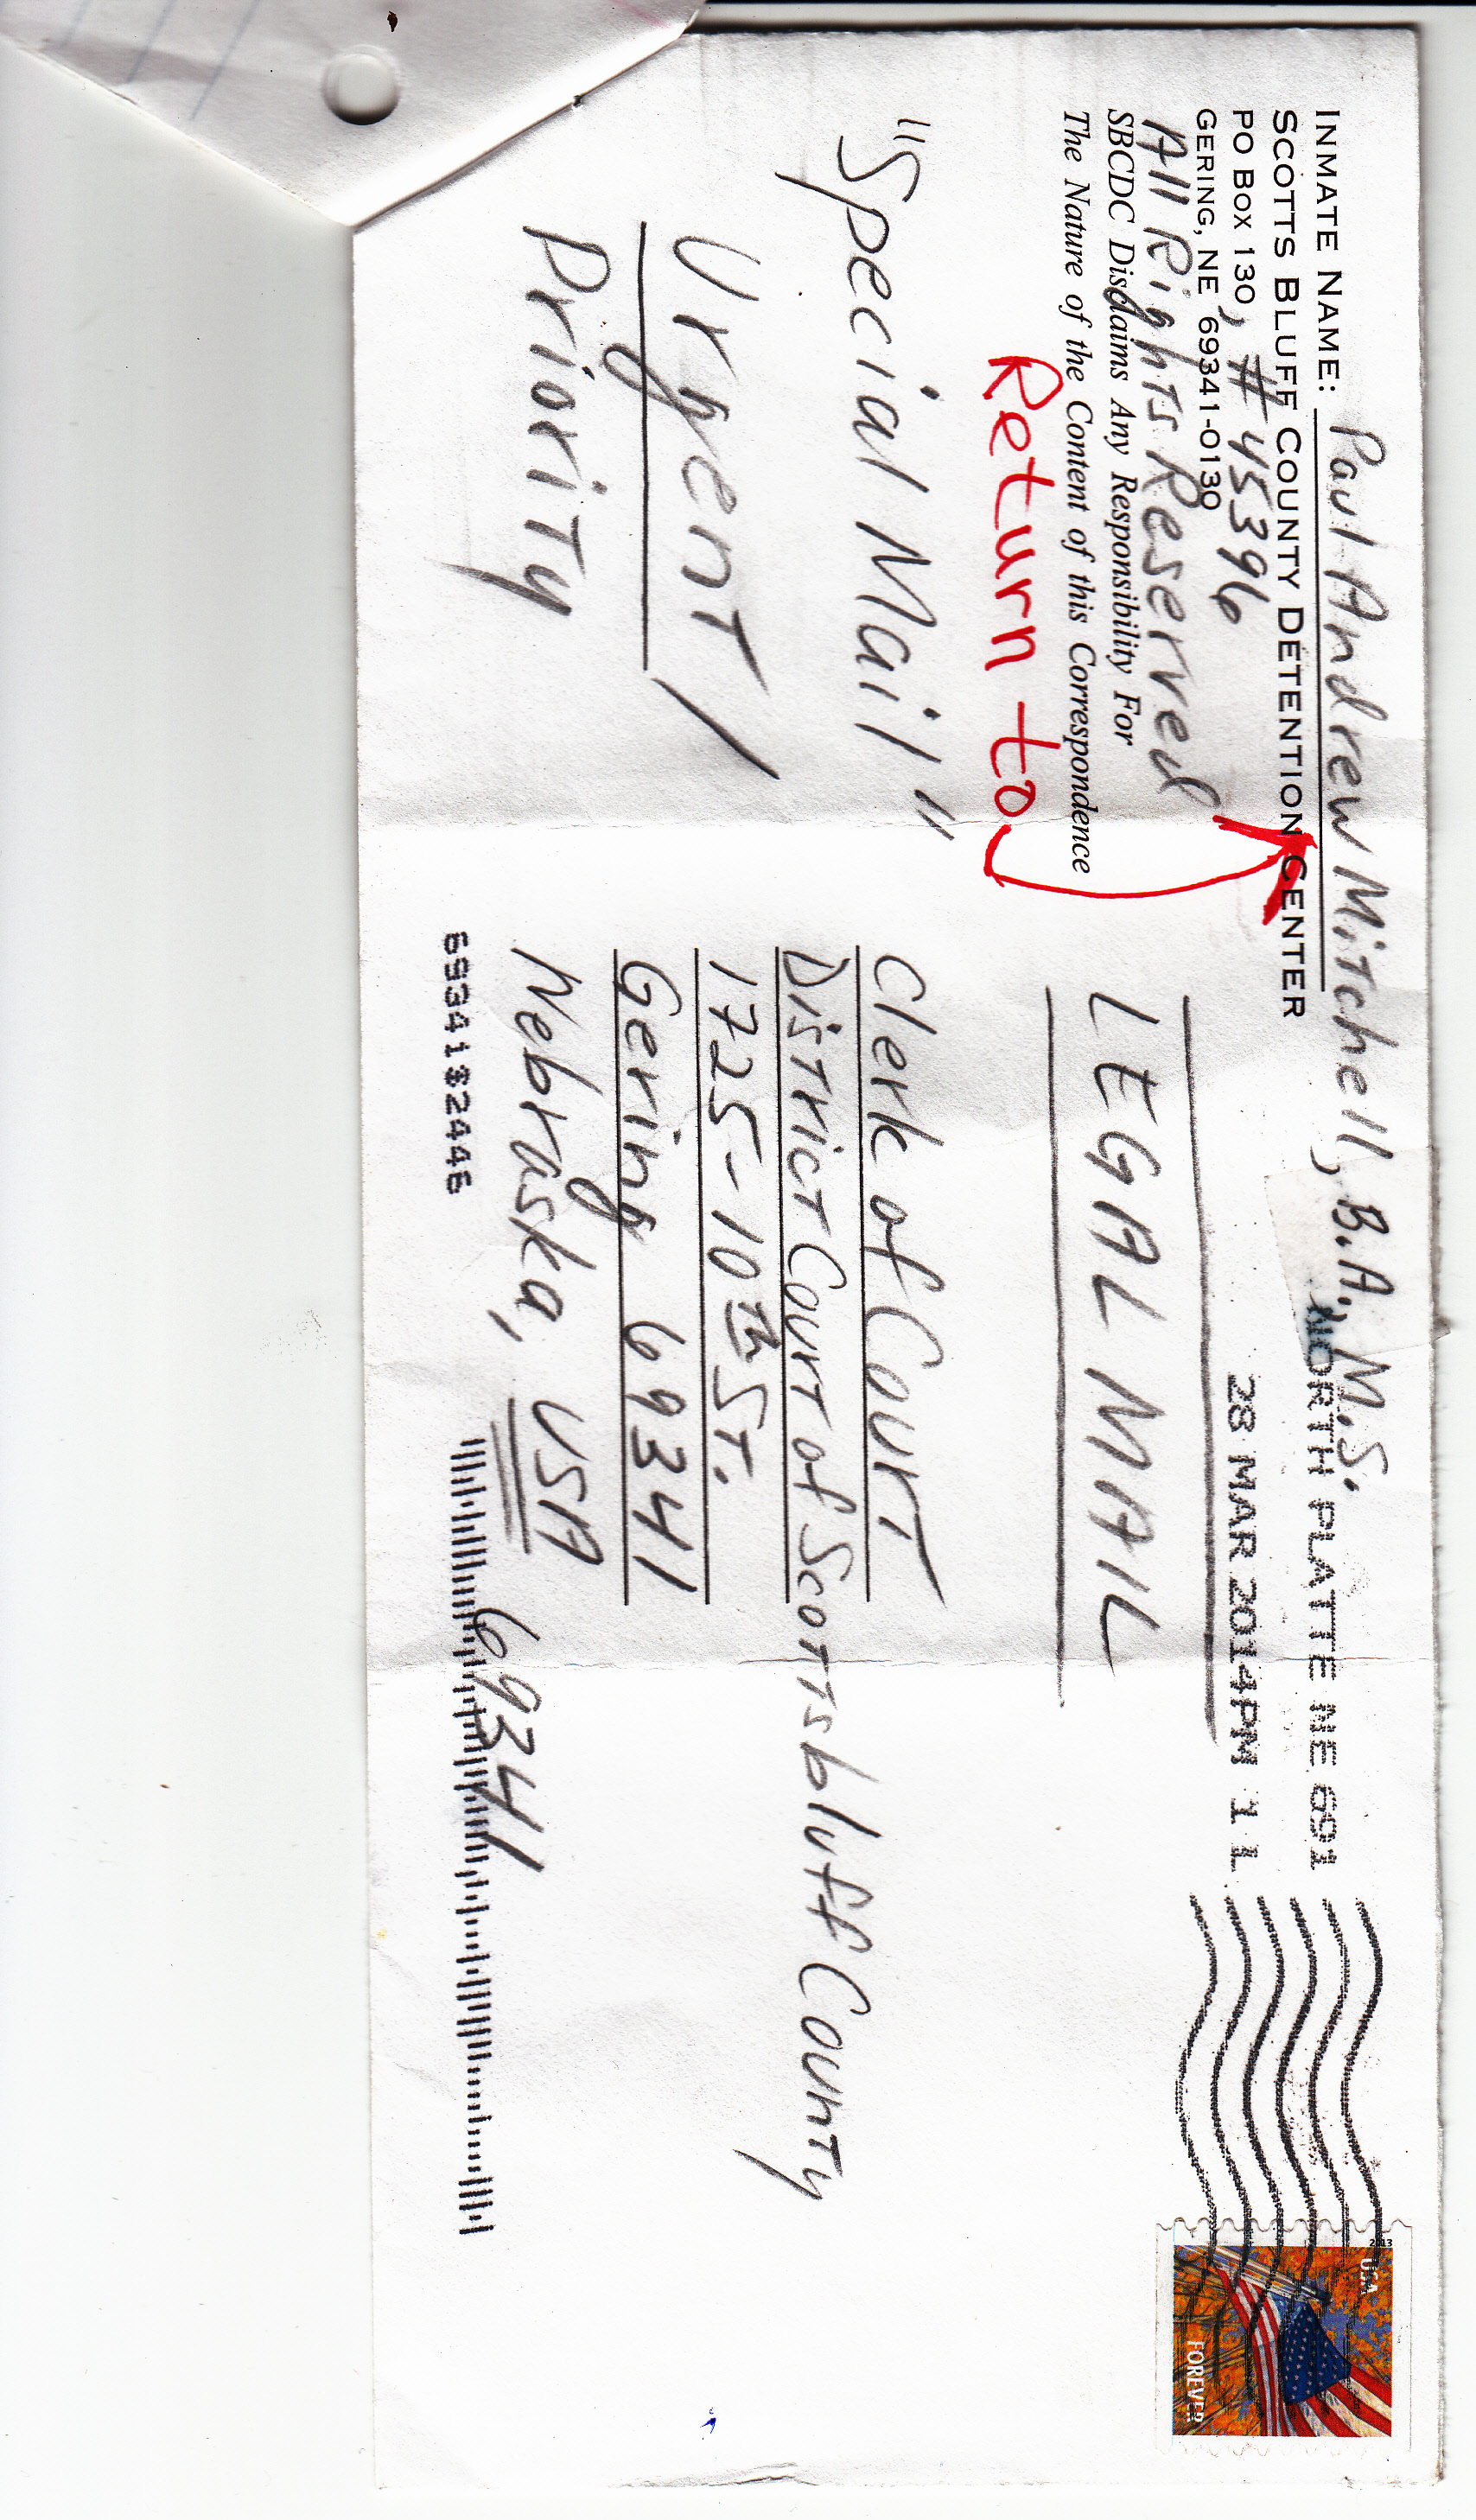 INMATE NAME: Paul Andrew Mitchell, B.A., M.S.
SCOTTS BLUFF COUNTY DETENTION CENTER
PO BOX 130, # 45396
GERING, NE 69341-0130
All Rights Reserved
SBCDC Disclaims Any Responsibility For
The Nature of the Content of this Correspondence
Return to
NORTH PLATTE NE 691
28 MAR 2014 PM 1 L
2013
USA
FOREVER
LEGAL MAIL
"Special Mail"
Urgent /
Priority
Clerk of Court
District Court of Scottsbluff County
1725-10th St.
Gering 69341
Nebraska, USA 69341
69341$2446